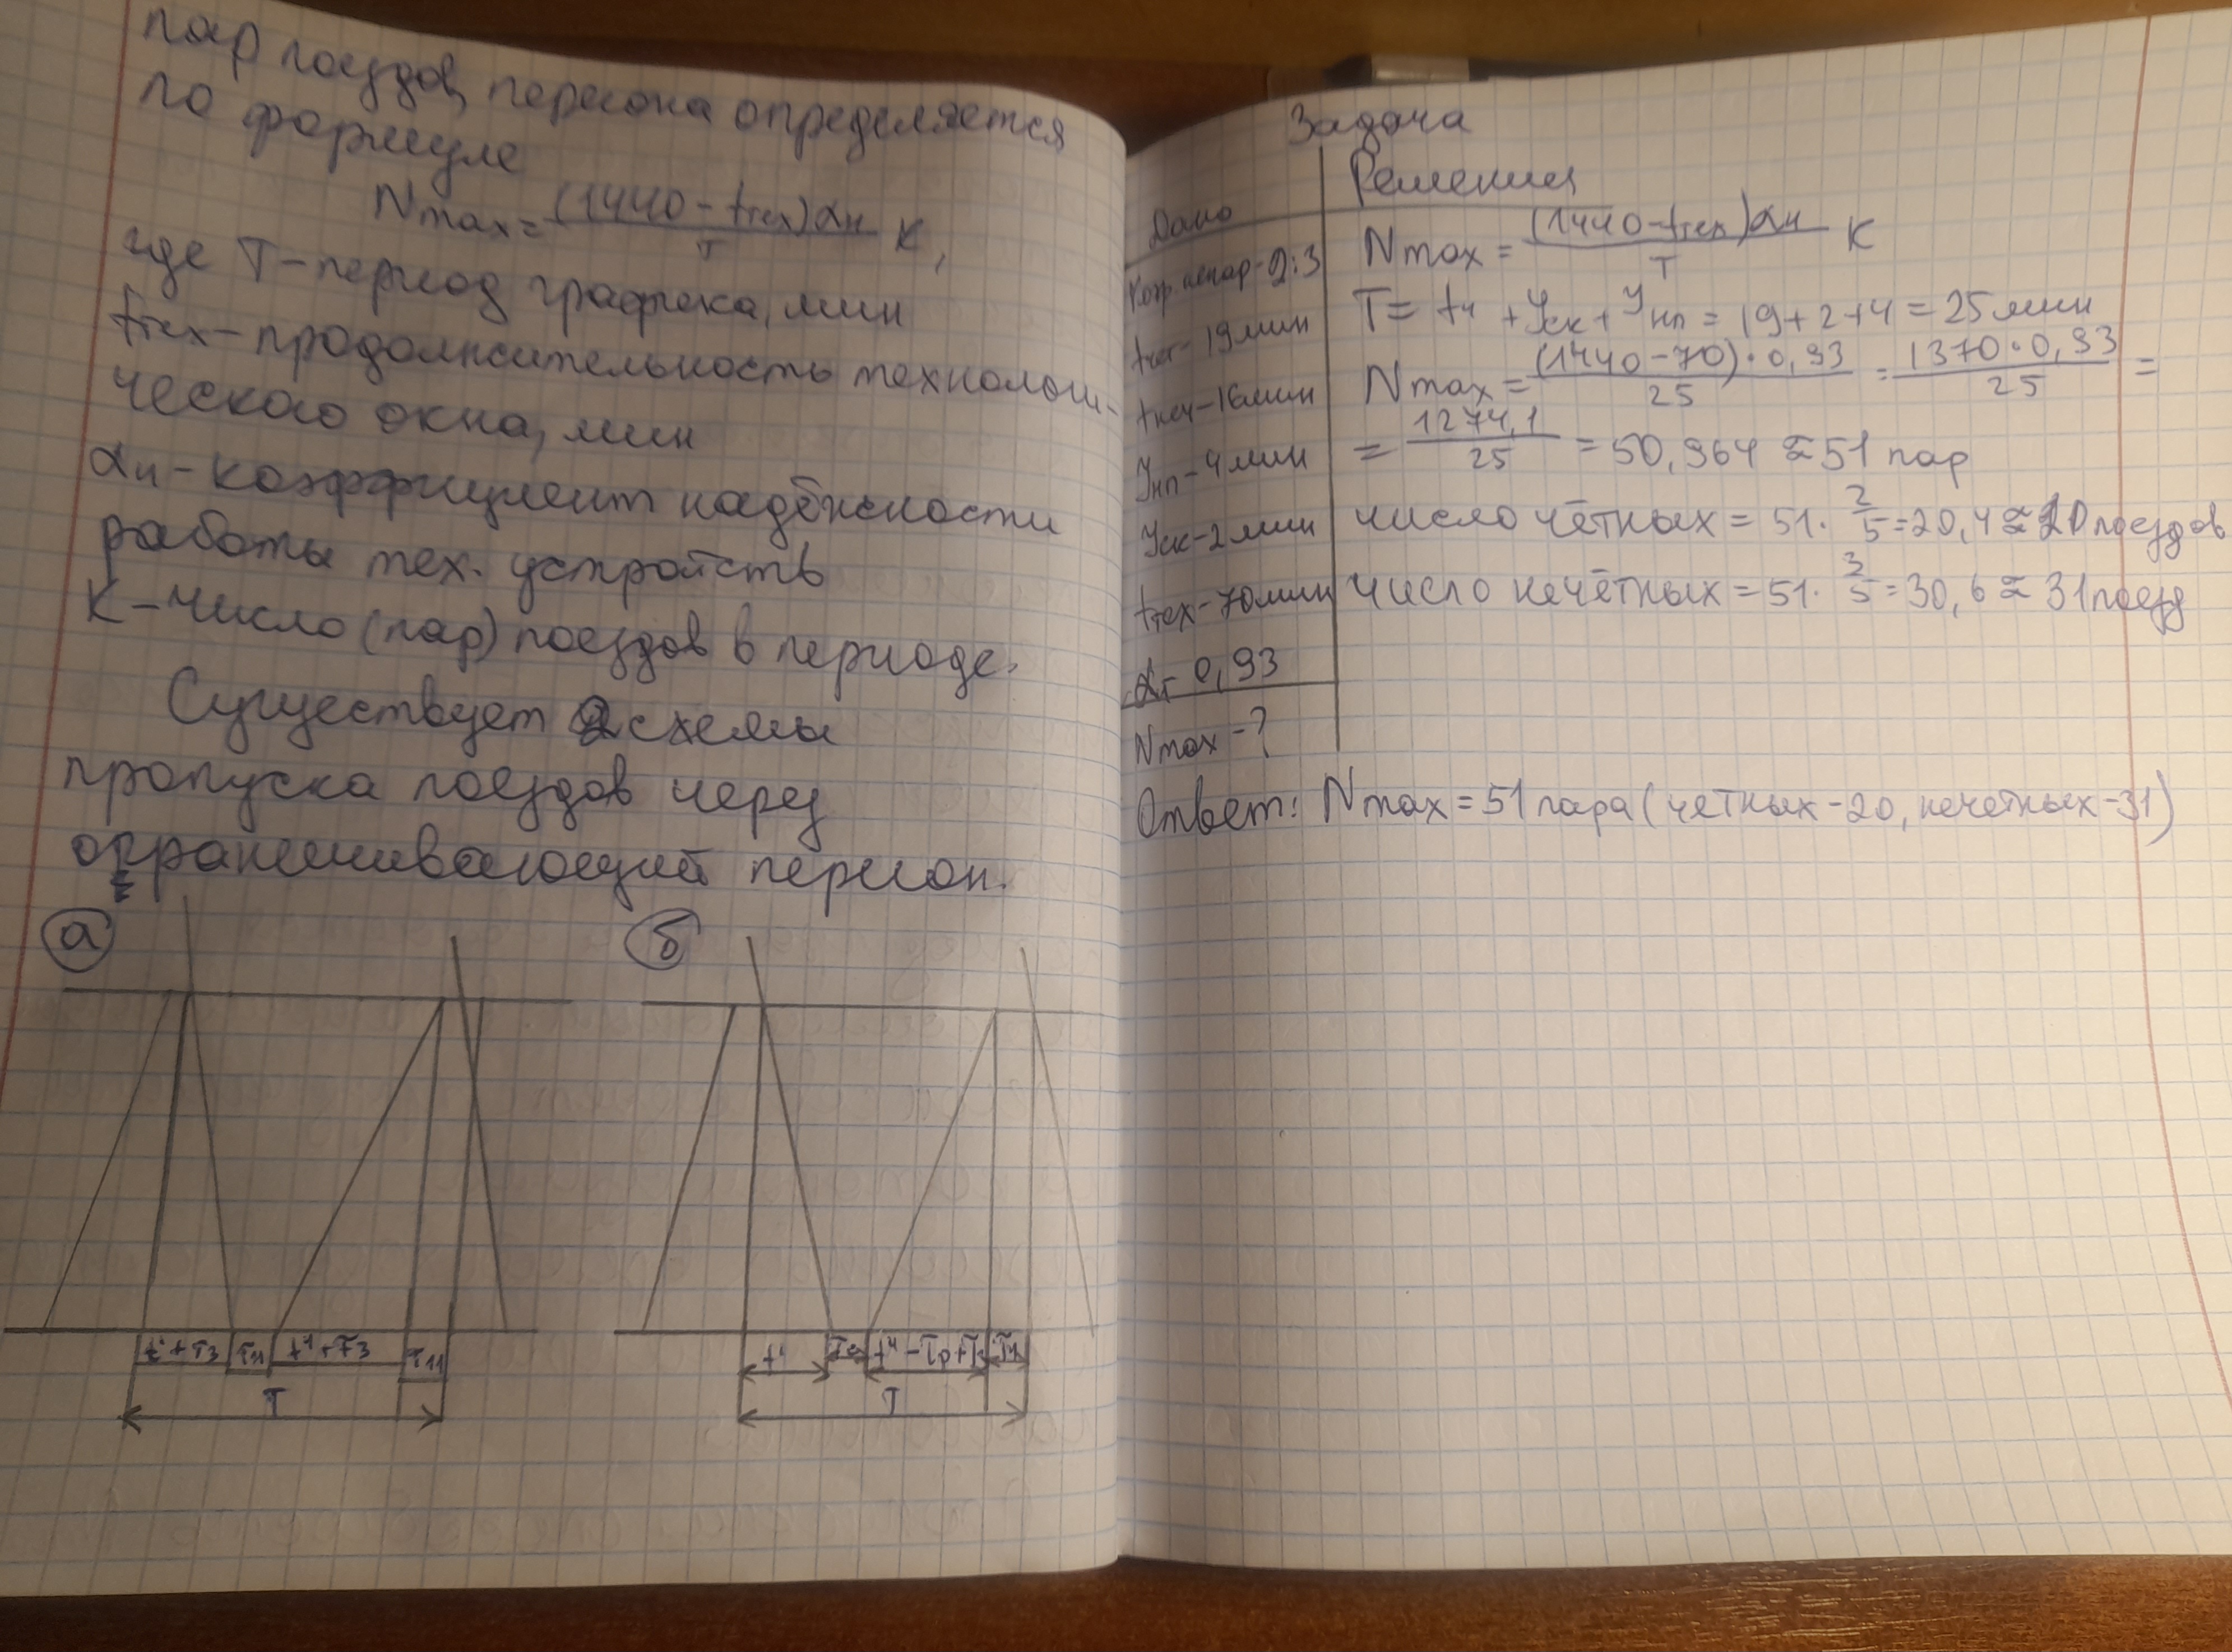 пар поездов перегона определяется
по формуле
Nmax = (1440 - tтех)αн / T K,
где T - период графика, мин
tтех - продолжительность технологи-
ческого окна, мин
αн - коэффициент надёжности
работы тех. устройств
К - число (пар) поездов в периоде.
Существует 2 схемы
пропуска поездов через
ограничивающий перегон.
а
t' + τ3 τ11 t" + τ3 τ11
T
б
t' t" - τр + τ3
T
Задача
Дано
непар - 2:3
tчет - 19 мин
tнеч - 16 мин
Jнп - 4 мин
Jск - 2 мин
tтех - 70 мин
α - 0,93
Nmax - ?
Решения
Nmax = (1440 - tтех)αн / T K
T = tч + Jск + Jнп = 19 + 2 + 4 = 25 мин
Nmax = (1440 - 70) · 0,93 / 25 = 1370 · 0,93 / 25 =
= 1274,1 / 25 = 50,964 ≈ 51 пар
число чётных = 51 · 2/5 = 20,4 ≈ 20 поездов
число нечётных = 51 · 3/5 = 30,6 ≈ 31 поезд
Ответ: Nmax = 51 пара (четных - 20, нечетных - 31)